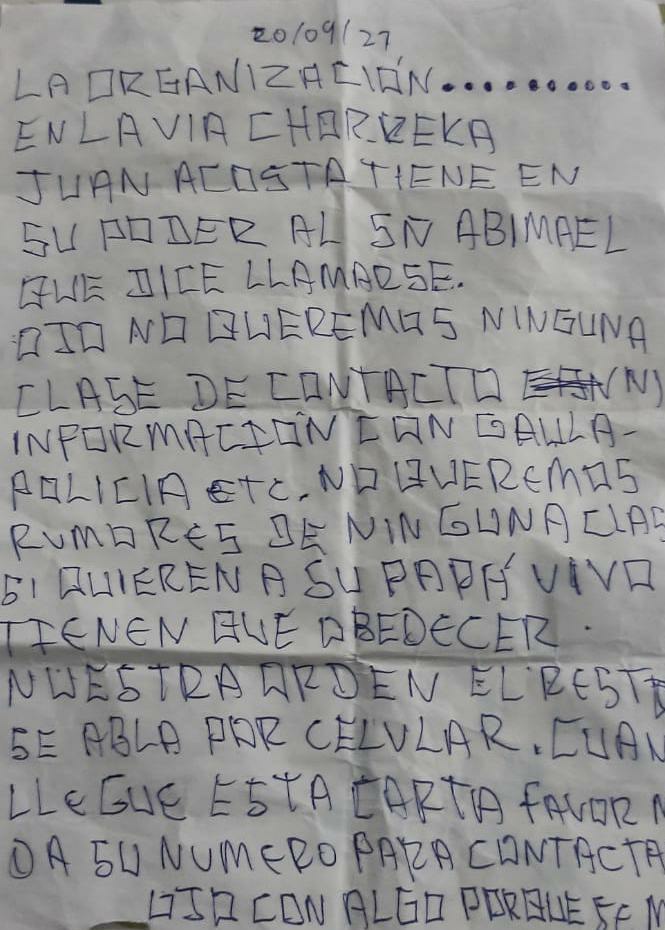 20/09/27
LA ORGANIZACIÓN...........
EN LA VIA CHORRERA
JUAN ACOSTA TIENE EN
SU PODER AL SÑ ABIMAEL
QUE DICE LLAMARSE.
OJO NO QUEREMOS NINGUNA
CLASE DE CONTACTO (NI
INFORMACION CON GAULA-
POLICIA ETC. NO QUEREMOS
RUMORES DE NINGUNA CLAS
SI QUIEREN A SU PAPÁ VIVO
TIENEN QUE OBEDECER.
NUESTRA ORDEN EL RESTO
SE ABLA POR CELULAR. CUAN
LLEGUE ESTA CARTA FAVOR
DA SU NUMERO PARA CONTACTA
OJO CON ALGO PORQUE SE M